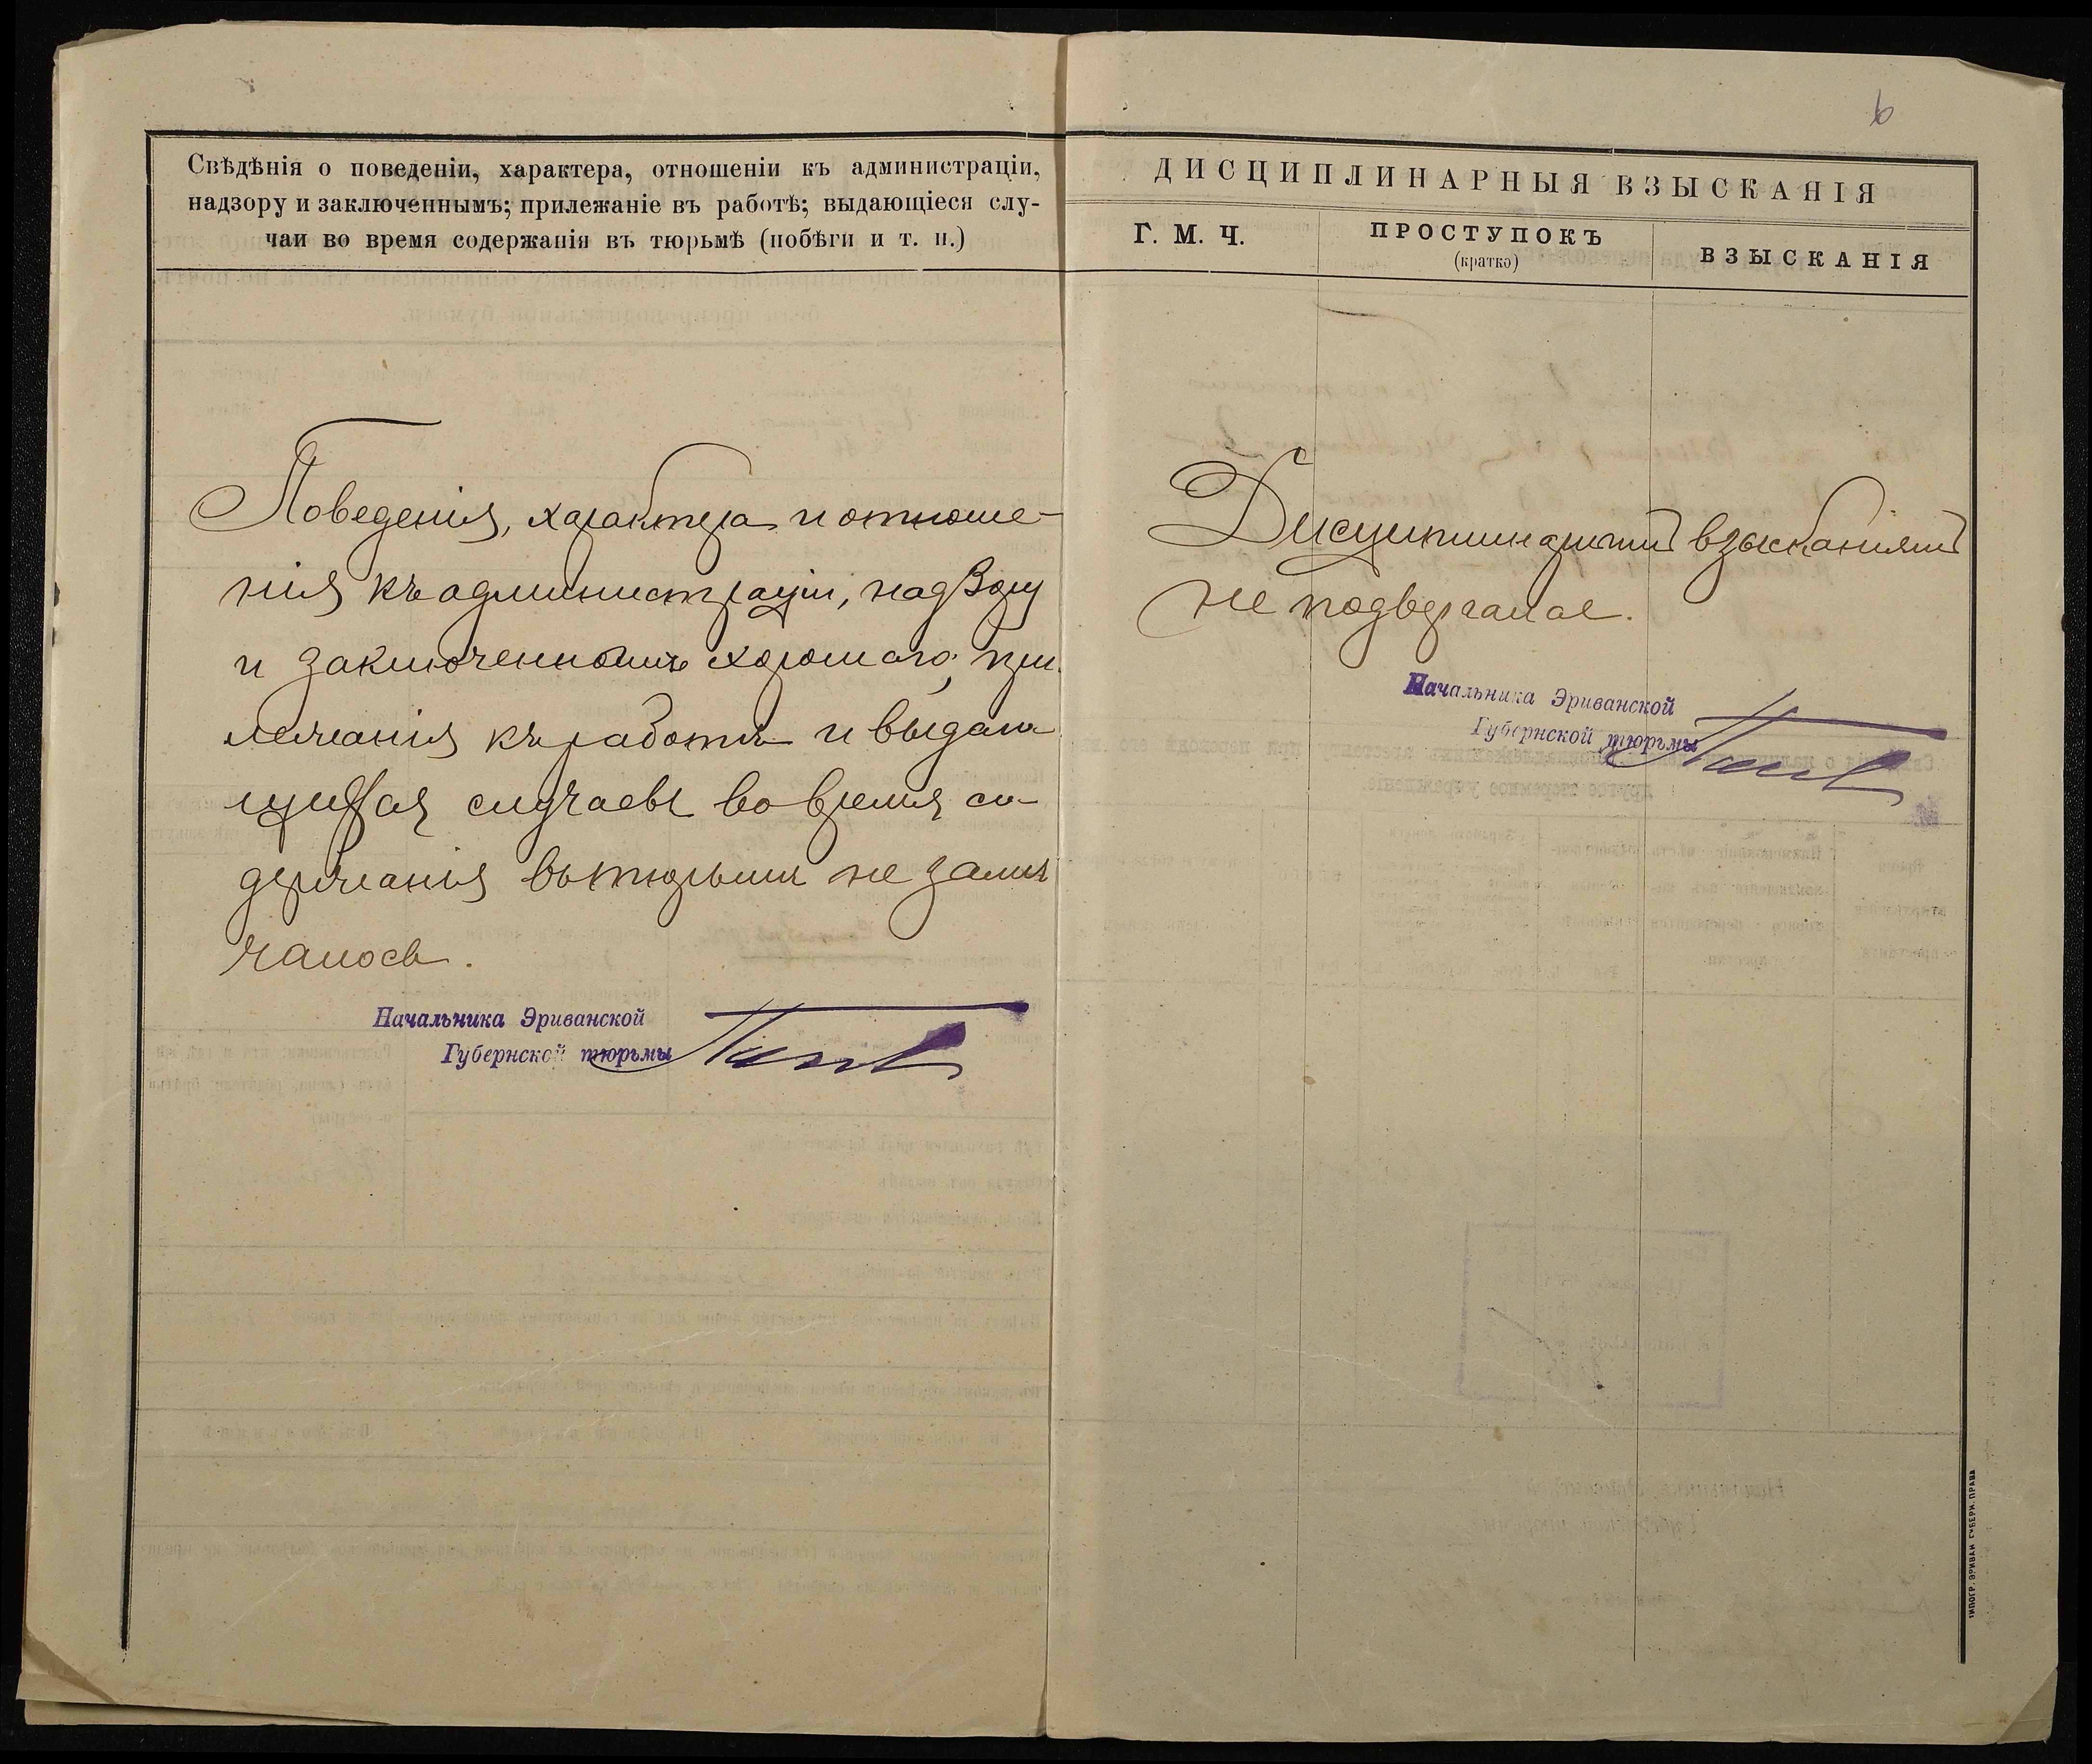 Свѣдѣнія о поведеніи, характера, отношеніи къ администраціи,
надзору и заключеннымъ; прилежаніе въ работѣ; выдающіеся слу-
чаи во время содержанія въ тюрьмѣ (побѣги и т. п.)
Поведенія, характера и отноше-
нія къ администраціи, надзору
и заключеннымъ хорошаго, при-
лежанія къ работѣ и выдаю-
щихся случаевъ во время со-
держанія въ тюрьмѣ не замѣ
чалось.
Начальника Эриванской
Губернской тюрьмы
6
ДИСЦИПЛИНАРНЫЯ ВЗЫСКАНІЯ
Г. М. Ч.
ПРОСТУПОКЪ
(кратко)
ВЗЫСКАНІЯ
Дисциплинарнымъ взысканіямъ
не подвергался.
Начальника Эриванской
Губернской тюрьмы
ТИПОГР. ЭРИВАН. ГУБЕРН. ПРАВЛ